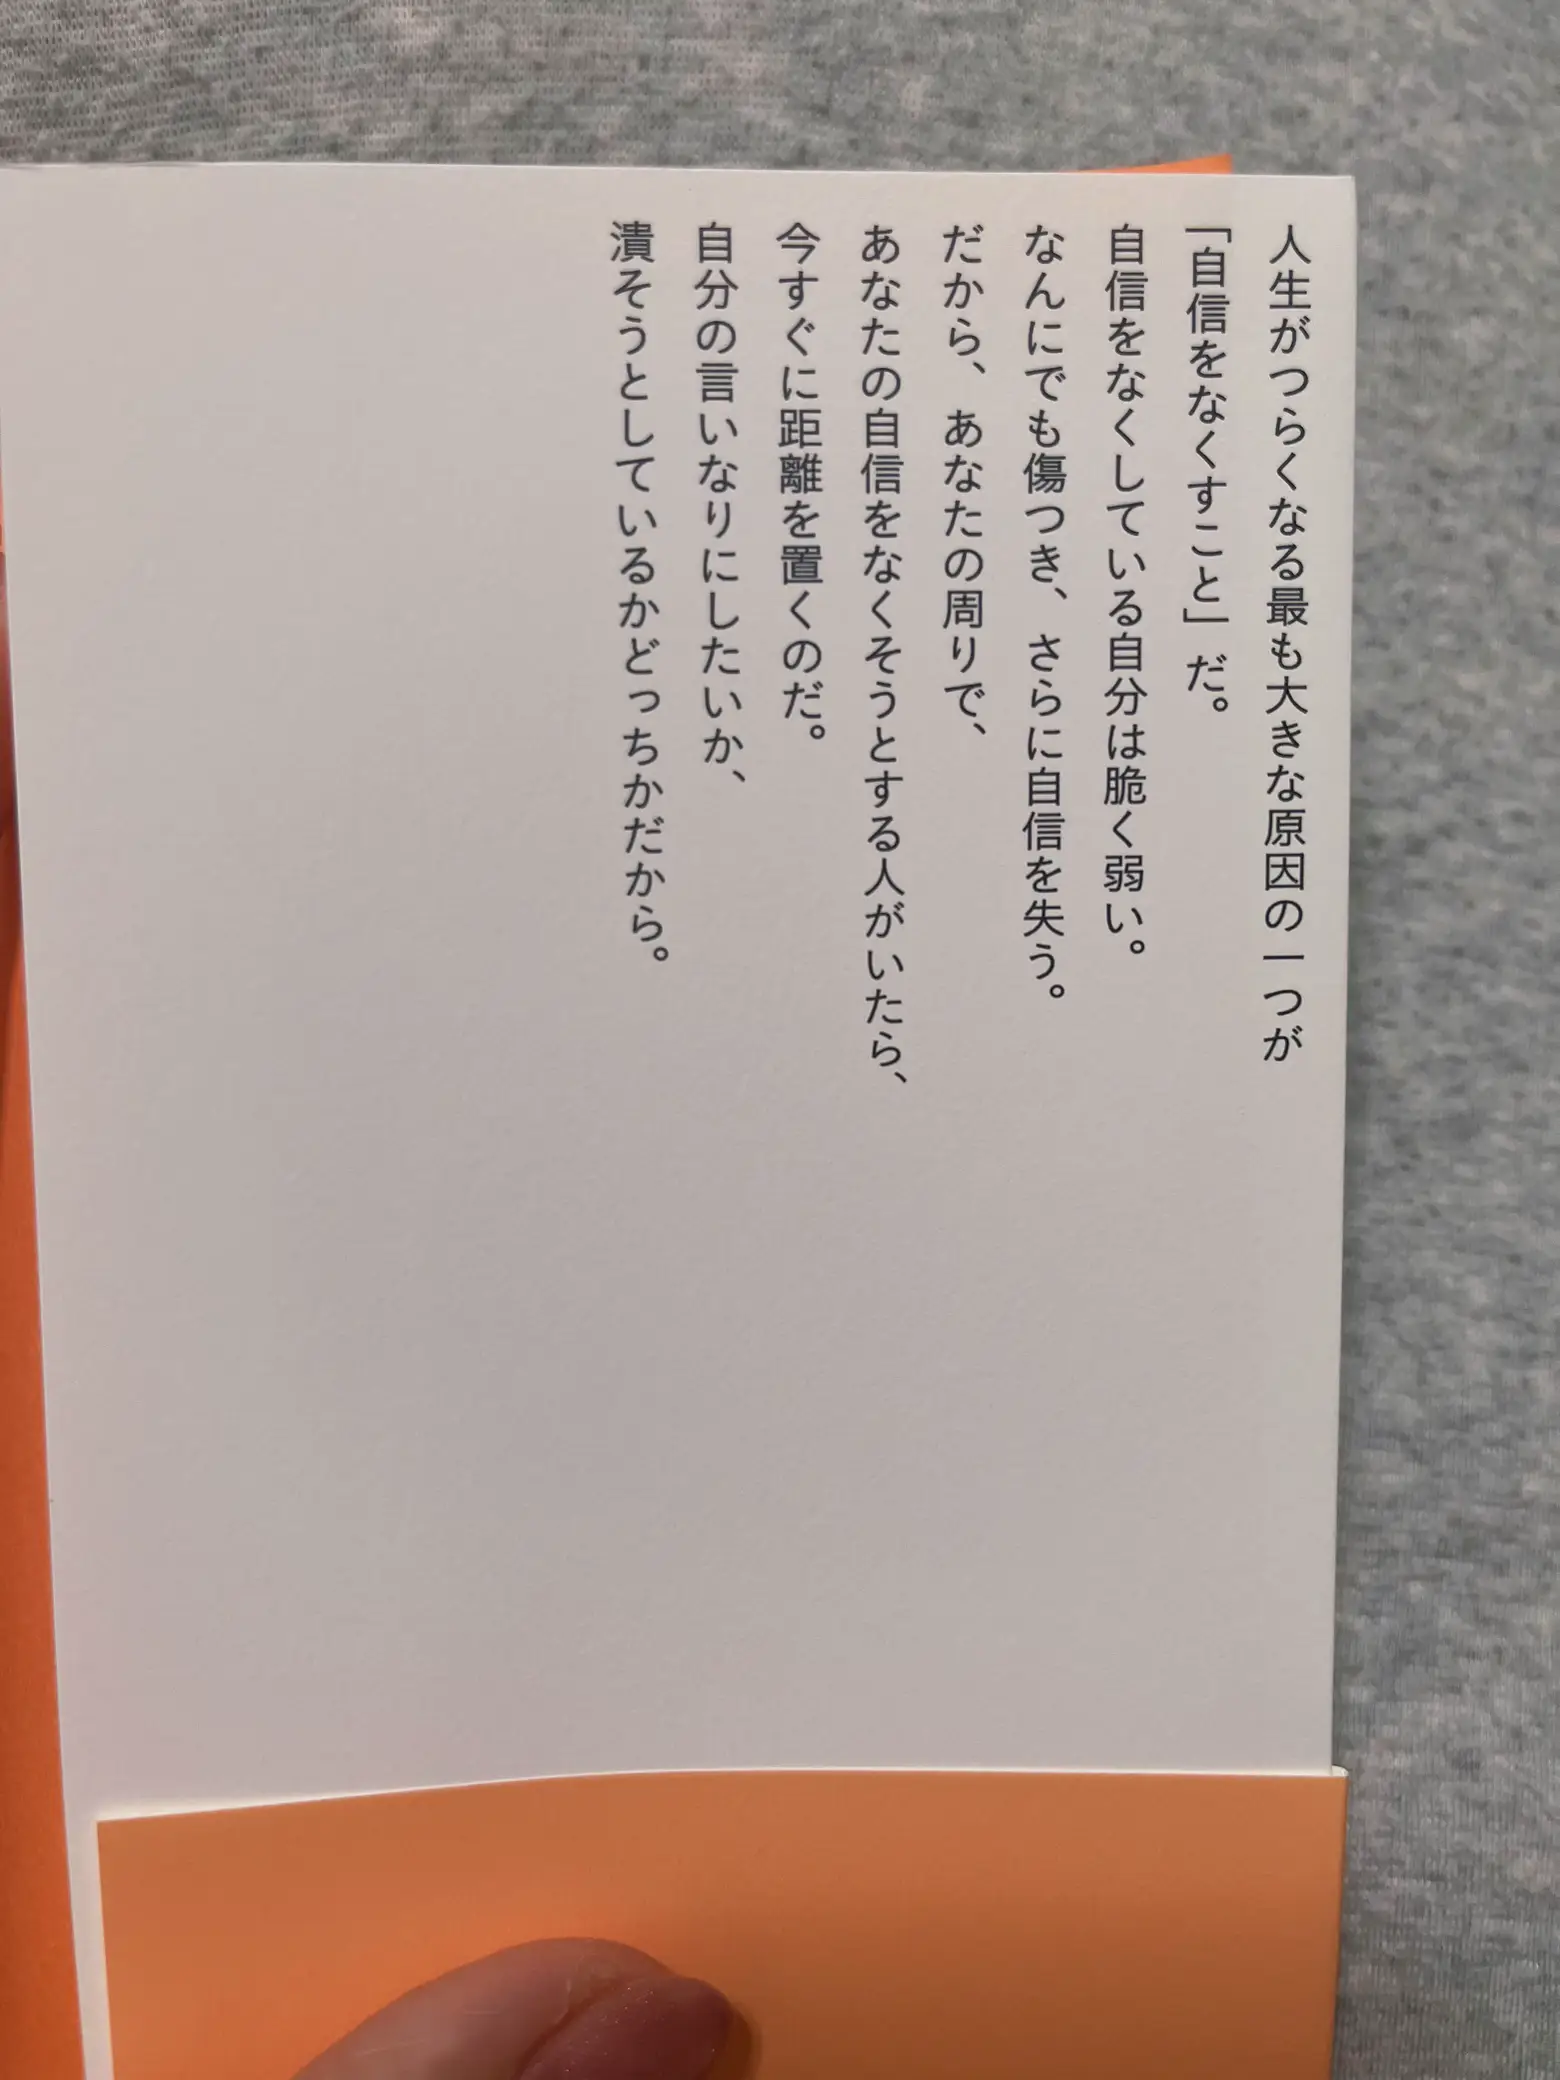 人生がつらくなる最も大きな原因の一つが
「自信をなくすこと」だ。
自信をなくしている自分は脆く弱い。
なんにでも傷つき、さらに自信を失う。
だから、あなたの周りで、
あなたの自信をなくそうとする人がいたら、
今すぐに距離を置くのだ。
自分の言いなりにしたいか、
潰そうとしているかどっちかだから。